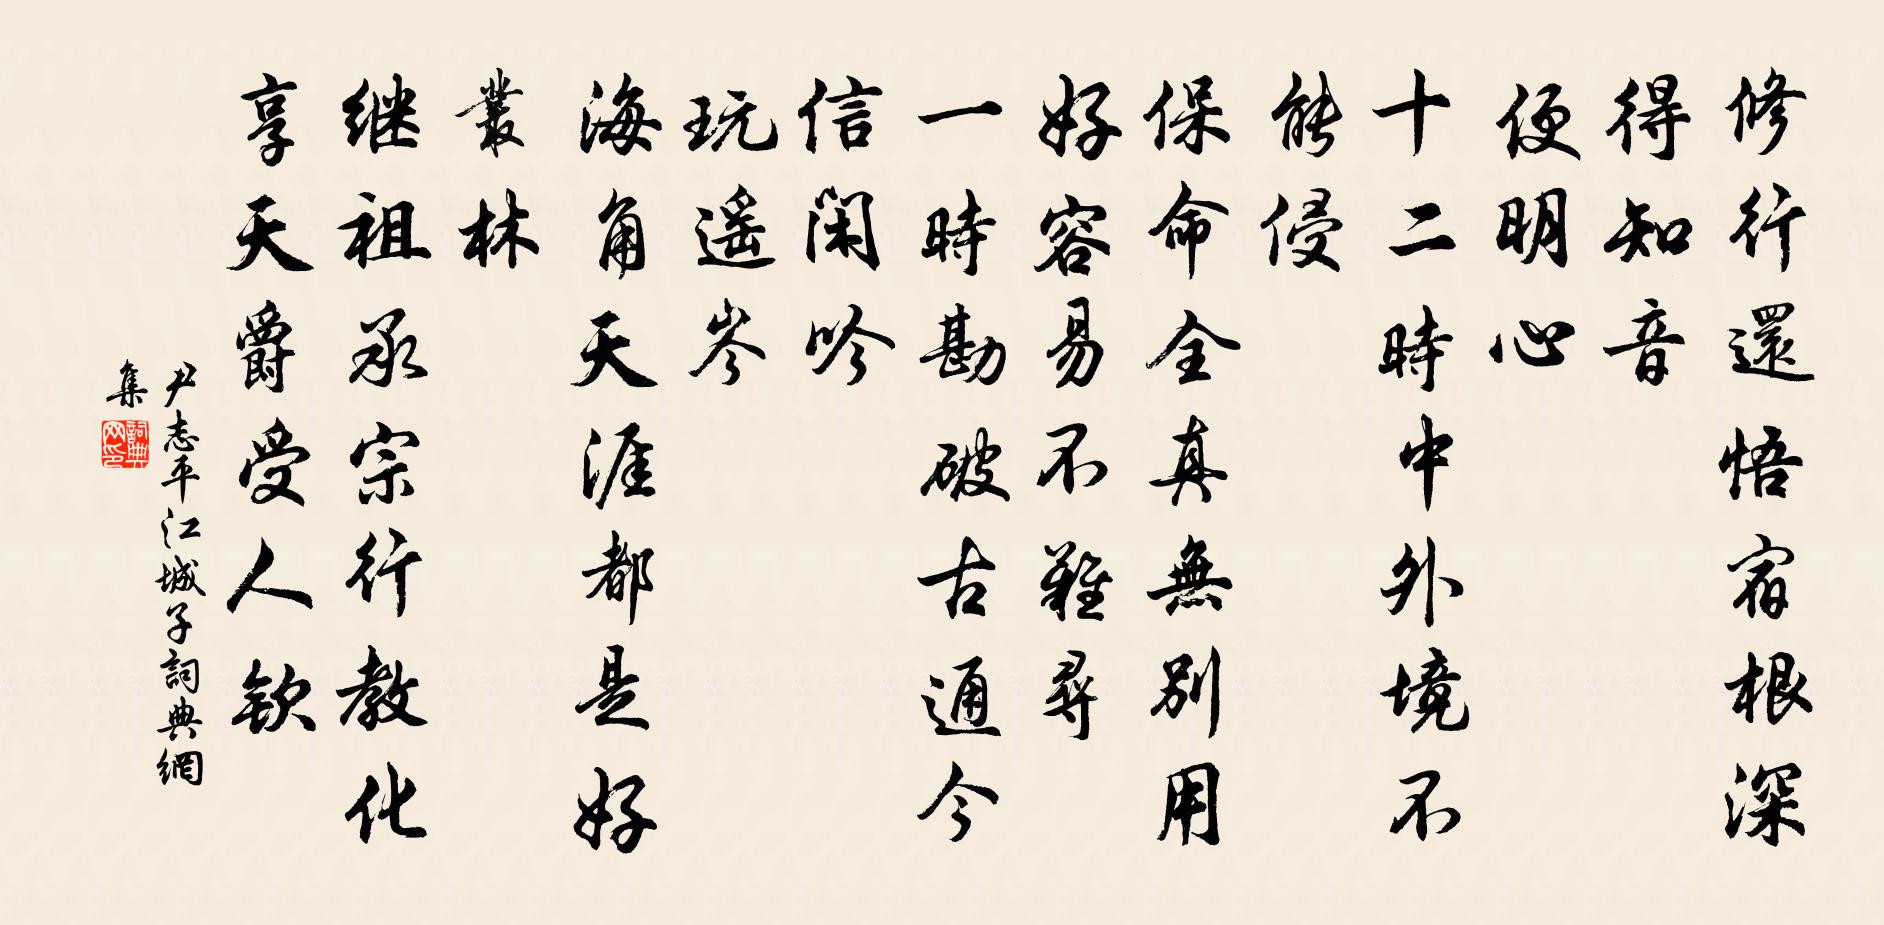 修行還悟宿根深
得知音
便明心
十二時中外境不
能侵
保命全真無別用
好容易不難尋
一時勘破古通今
信閑吟
玩遥岑
海角天涯都是好
叢林
继祖承宗行教化
享天爵受人欽
尹志平江城子詞典網
集
詞典网印